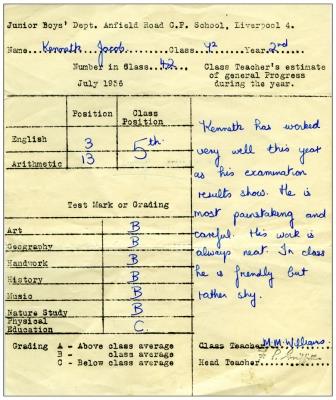 Junior Boys' Dept. Anfield Road C.P. School, Liverpool 4.
Name Kenneth Jacob Class 4² Year 2nd
Number in Class 42
Class Teacher's estimate of general Progress during the year.
July 1956
Position Class Position
English 3 5th
Arithmetic 13
Test Mark or Grading
Art B
Geography B
Handwork B
History B
Music B
Nature Study B
Physical Education C.
Kenneth has worked
very well this year
as his examination
results show. He is
most painstaking and
careful. His work is
always neat. In class
he is friendly but
rather shy.
Grading A - Above class average
B - class average
C - Below class average
Class Teacher M.M. Williams
Head Teacher